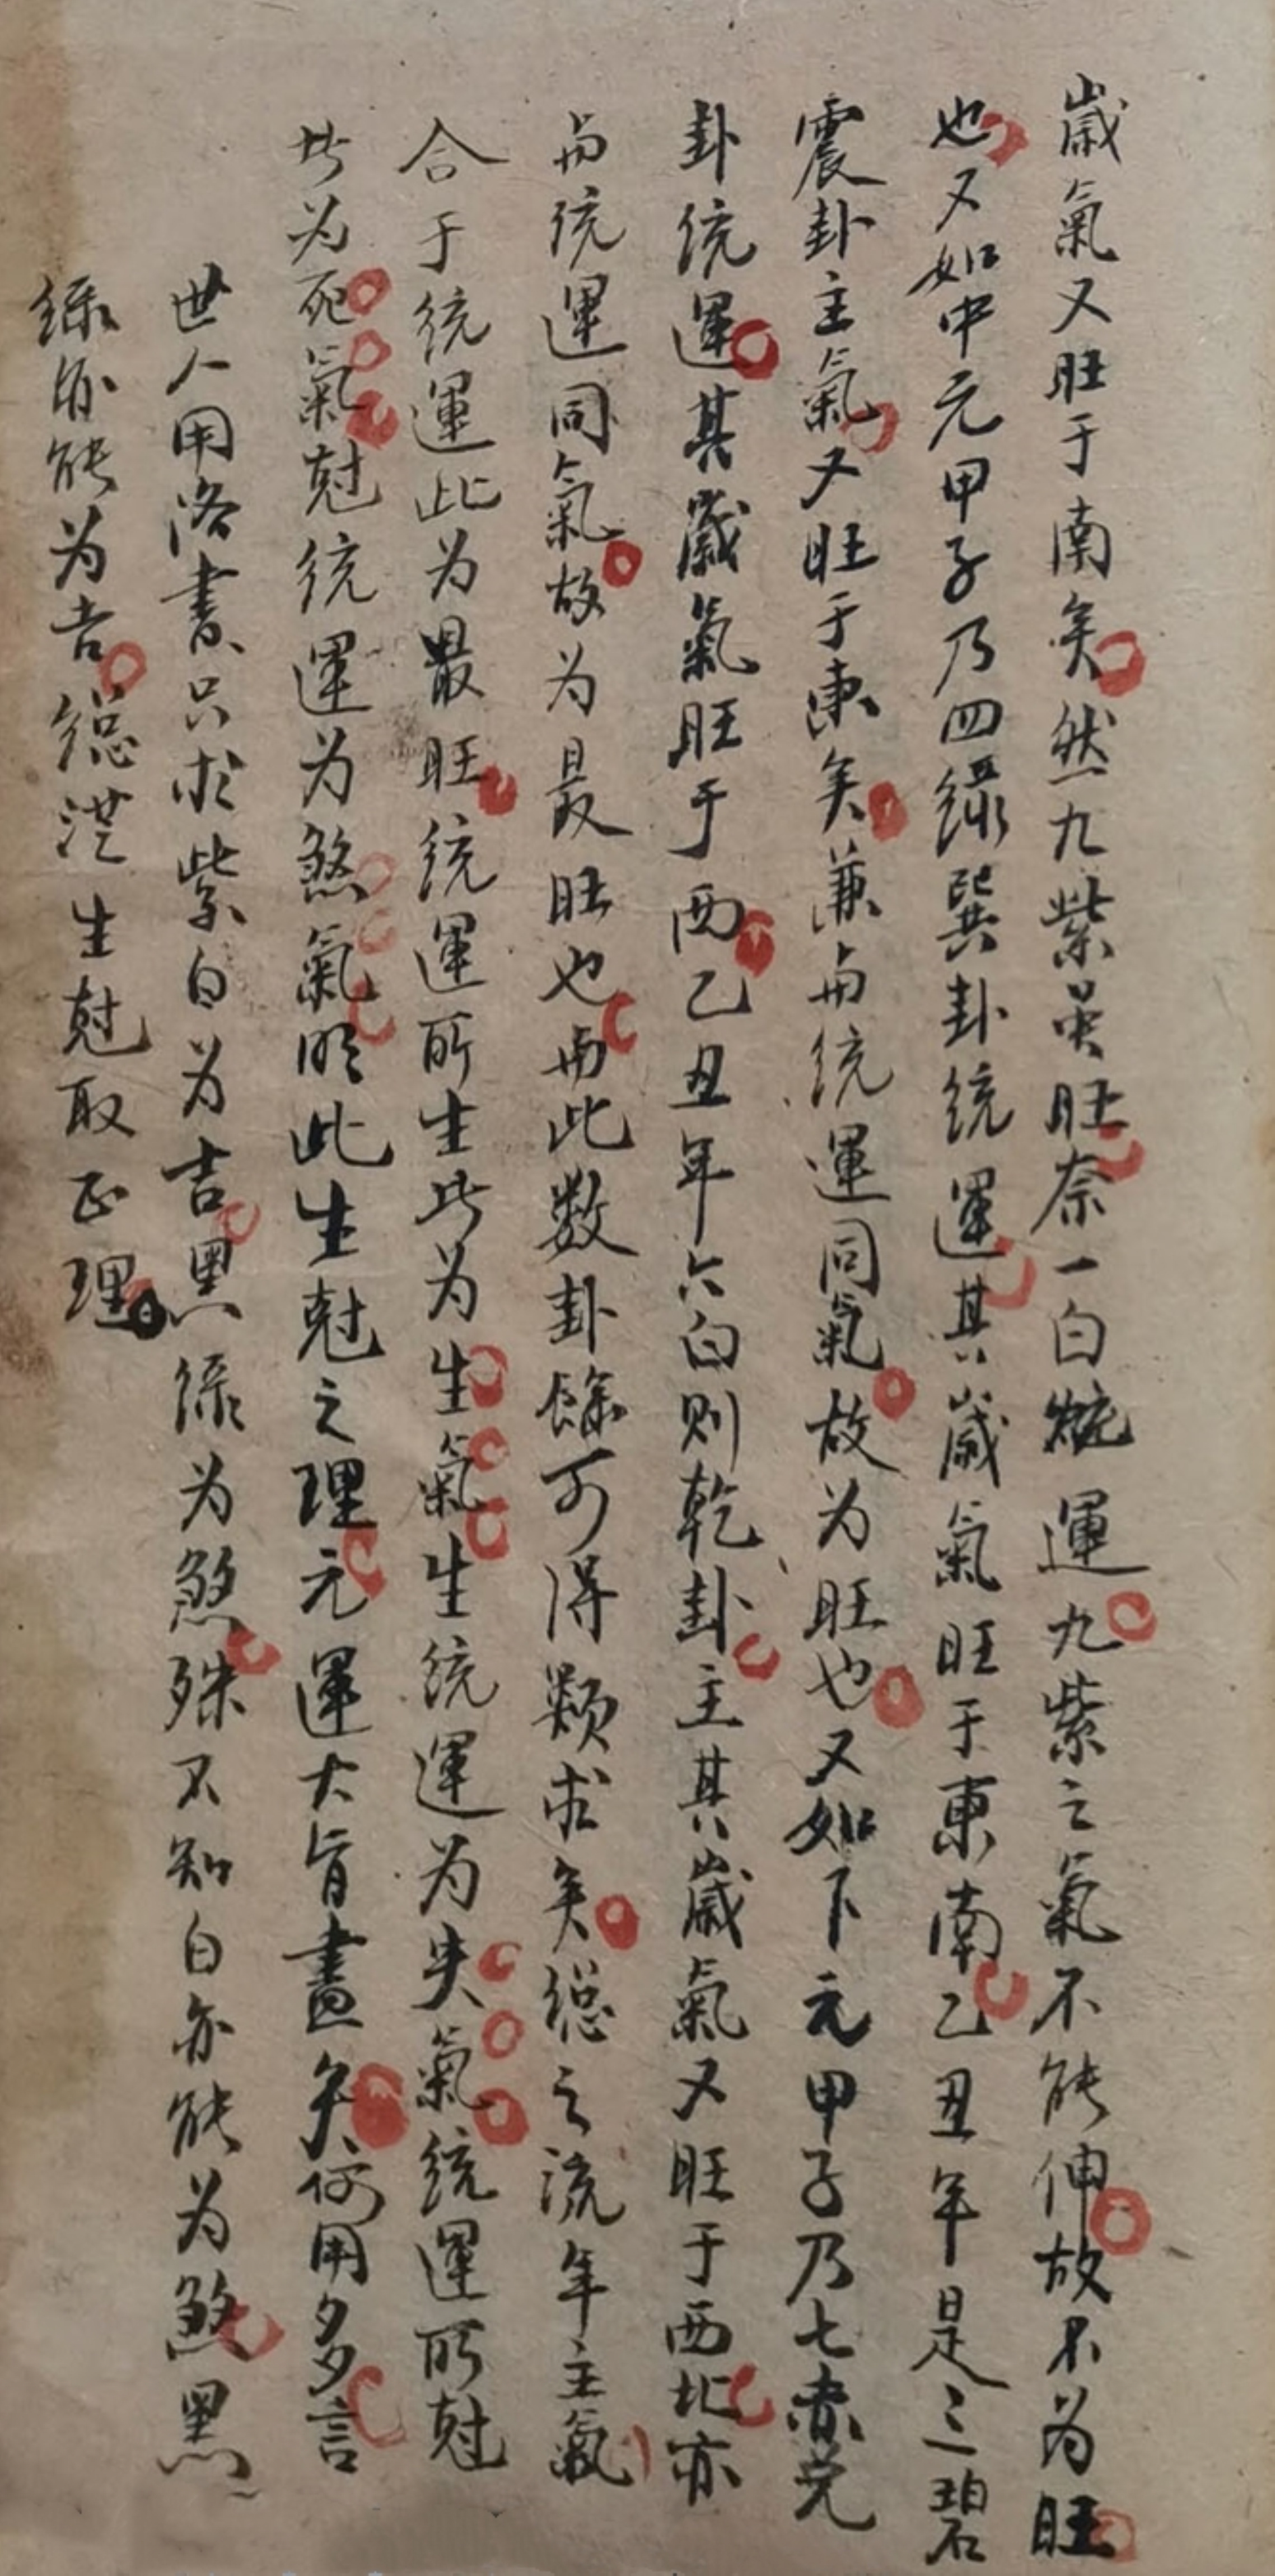 歲氣又旺于南矣然九紫英旺奈一白統運九紫之氣不能伸故不为旺
也又如中元甲子乃四綠巽卦統運其歲氣旺于東南乙丑年是三碧
震卦主氣又旺于東矣兼与統運同氣故为旺也又如下元甲子乃七赤兑
卦統運其歲氣旺于西乙丑年六白则乾卦主其歲氣又旺于西北亦
与統運同氣故为最旺也与此数卦餘可得類求矣總之流年主氣
合于統運此为最旺統運所生此为生氣生統運为失氣統運所尅
此为死氣尅統運为煞氣明此生尅之理元運大旨盡矣何用多言
世人用洛書只求紫白为吉黑綠为煞殊不知白亦能为煞黑
綠亦能为吉總從生尅取正理